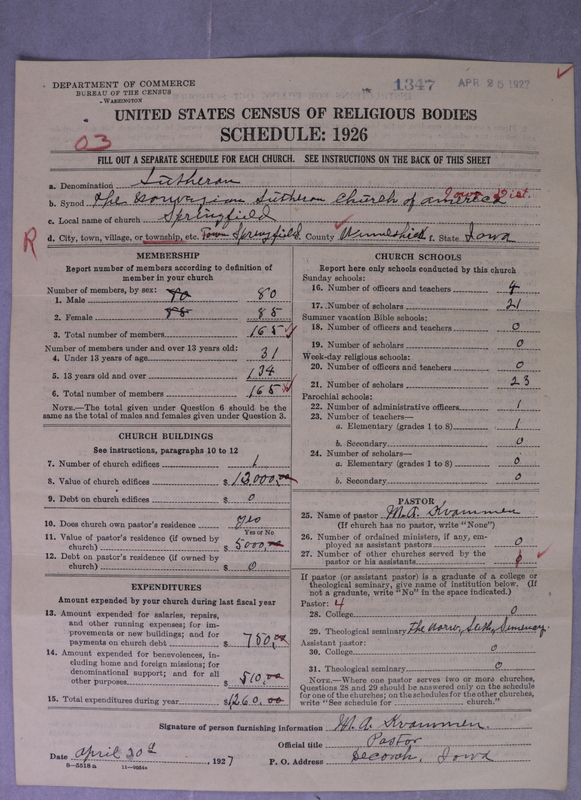 DEPARTMENT OF COMMERCE
BUREAU OF THE CENSUS
WASHINGTON
1347 APR 25 1927
UNITED STATES CENSUS OF RELIGIOUS BODIES
SCHEDULE: 1926
03
FILL OUT A SEPARATE SCHEDULE FOR EACH CHURCH. SEE INSTRUCTIONS ON THE BACK OF THIS SHEET
a. Denomination Lutheran
b. Synod The Norwegian Lutheran Church of america Iowa Dist.
c. Local name of church Springfield
R
d. City, town, village, or township, etc. Town Springfield e. County Winneshiek f. State Iowa
MEMBERSHIP
Report number of members according to definition of member in your church
Number of members, by sex:
1. Male 80 80
2. Female 85 85
3. Total number of members 165
Number of members under and over 13 years old:
4. Under 13 years of age 31
5. 13 years old and over 134
6. Total number of members 165
NOTE.—The total given under Question 6 should be the same as the total of males and females given under Question 3.
CHURCH BUILDINGS
See instructions, paragraphs 10 to 12
7. Number of church edifices 1
8. Value of church edifices $ 12,000.00
9. Debt on church edifices $ 0
10. Does church own pastor's residence yes
Yes or No
11. Value of pastor's residence (if owned by church) $ 5000.00
12. Debt on pastor's residence (if owned by church) $ 0
EXPENDITURES
Amount expended by your church during last fiscal year
13. Amount expended for salaries, repairs, and other running expenses; for improvements or new buildings; and for payments on church debt $ 750.00
14. Amount expended for benevolences, including home and foreign missions; for denominational support; and for all other purposes $ 510.00
15. Total expenditures during year $ 1260.00
CHURCH SCHOOLS
Report here only schools conducted by this church
Sunday schools:
16. Number of officers and teachers 4
17. Number of scholars 21
Summer vacation Bible schools:
18. Number of officers and teachers 0
19. Number of scholars 0
Week-day religious schools:
20. Number of officers and teachers 0
21. Number of scholars 23
Parochial schools:
22. Number of administrative officers 1
23. Number of teachers—
a. Elementary (grades 1 to 8) 1
b. Secondary 0
24. Number of scholars—
a. Elementary (grades 1 to 8) 0
b. Secondary 0
PASTOR
25. Name of pastor M.A. Kvammen
(If church has no pastor, write "None")
26. Number of ordained ministers, if any, employed as assistant pastors 0
27. Number of other churches served by the pastor or his assistants
If pastor (or assistant pastor) is a graduate of a college or theological seminary, give name of institution below. (If not a graduate, write "No" in the space indicated.)
Pastor: 4
28. College 0
29. Theological seminary The Norw. Luth. Seminary.
Assistant pastor:
30. College 0
31. Theological seminary 0
NOTE.—Where one pastor serves two or more churches, Questions 28 and 29 should be answered only on the schedule for one of the churches; on the schedules for the other churches, write "See schedule for church."
Signature of person furnishing information M. A. Kvammen.
Official title Pastor
Date april 20th, 1927 P. O. Address Decorah, Iowa
8—5318 a 11—9034a